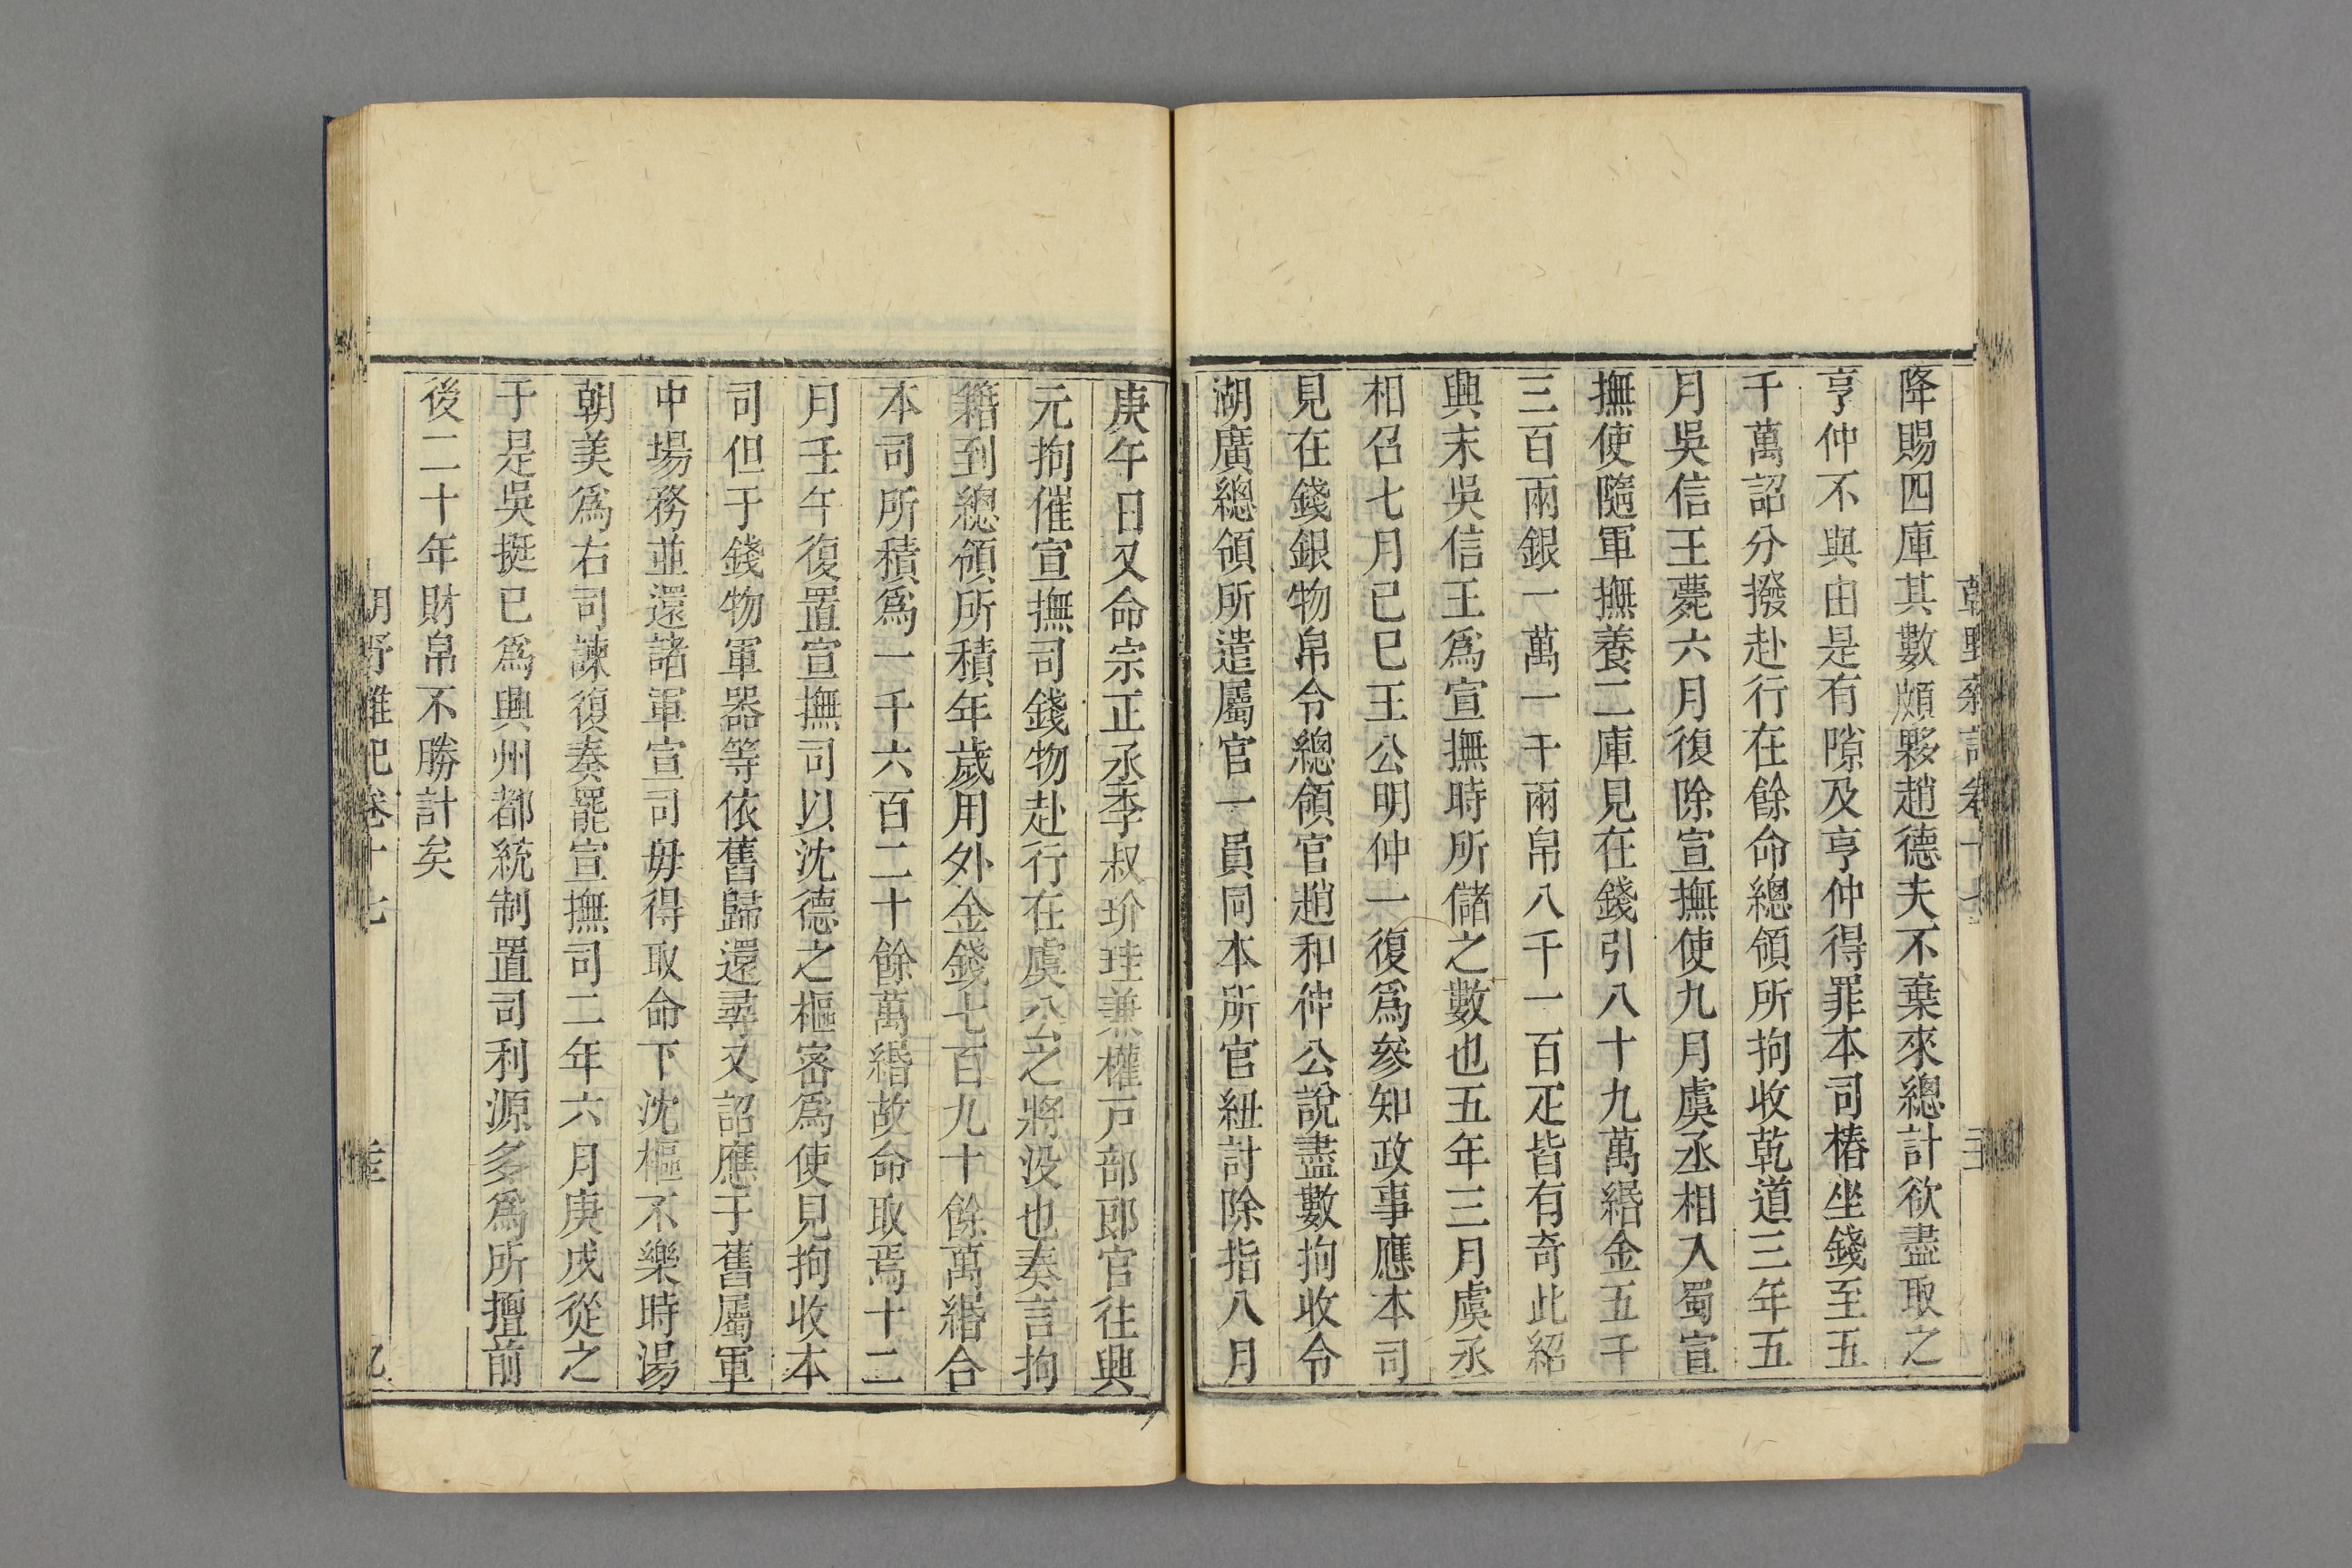 降賜四庫其數頗夥趙德夫不棄來總計欲盡取之
亨仲不與由是有隙及亨仲得罪本司樁坐錢至五
千萬詔分撥赴行在餘命總領所拘收乾道三年五
月吳信王薨六月復除宣撫使九月虞丞相入蜀宣
撫使隨軍撫養二庫見在錢引八十九萬緡金五千
三百兩銀一萬一千兩帛八千一百疋皆有奇此紹
興末吳信王為宣撫時所儲之數也五年三月虞丞
相召七月己巳王公明仲一復爲參知政事應本司
見在錢銀物帛令總領官趙和仲公說盡數拘收令
湖廣總領所遣屬官一員同本所官紐計除指八月
庚午日又命宗正丞李叔玠珪兼權戸部郎官往興
元拘催宣撫司錢物赴行在虞公之將没也奏言拘
籍到總領所積年歲用外金錢七百九十餘萬緡合
本司所積爲一千六百二十餘萬緡故命取焉十二
月壬午復置宣撫司以沈德之樞密爲使見拘收本
司但于錢物軍器等依舊歸還尋又詔應于舊屬軍
中場務並還諸軍宣司毋得取命下沈樞不樂時湯
朝美爲右司諫復奏罷宣撫司二年六月庚戌從之
于是吳挺已爲興州都統制置司利源多爲所擅前
後二十年財帛不勝計矣
朝野雜記卷十七